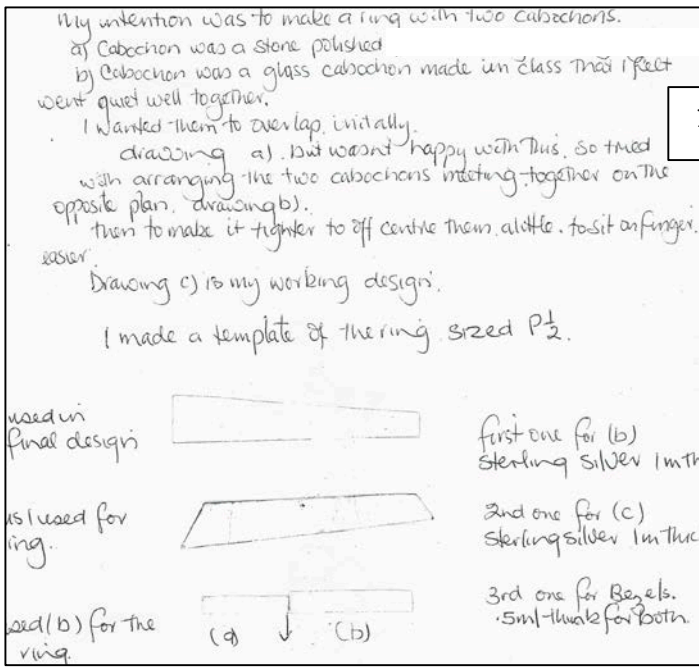 My intention was to make a ring with two cabochons.
a) Cabochon was a stone polished
b) Cabochon was a glass cabochon made in class that I felt
went quiet well together.
I wanted them to overlap, initally.
drawing a). but wasn't happy with this, so tried
with arranging the two cabochons meeting together on the
opposite plan, drawing b).
then to make it tighter to off centre them, a little. to sit on finger.
easier.
Drawing c) is my working design.
I made a template of the ring sized P½.
used in
final design
first one for (b)
sterling silver 1m
used for
ing.
2nd one for (c)
sterling silver 1m
(b) for the
ring.
(a)
(b)
3rd one for Bezels.
.5ml for both.